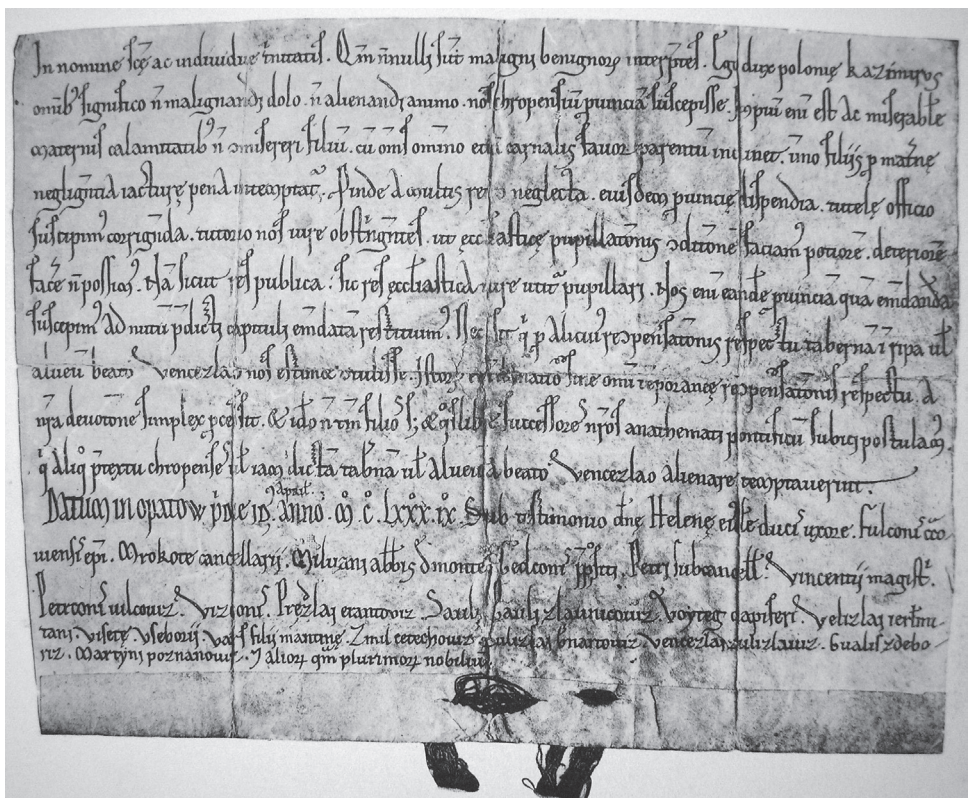 In nomine scē ac indiuidue t̄nitatis. Qm̄ n̄nulli sūt maligni benignoꝝ int̄ꝑtes. Ego dux polonie kazimirus
omib; significo n̄ malignandi dolo. n̄ alienandi animo. nos chropensiū puinciā suscepisse. Impiū eni est ac miserabile
maternis calamitatib; n̄ misereri filiū. cū om̄s omnino carnalis fauor parentū inclinet. uno filiis p mat̄ne
negligentia iacture pena intemptat. Proinde a multis neglecta. eiusdem puincie dispendia. tutele officio
suscepim corrigenda. tutorio nos iure obstringentes. ut eccłastice pupillationis ditione faciam potiorē. deteriorē
face n̄ possim. Nā sicut res publica. sic res eccłastica iure utit pupillari. Nos eni eande puinciā quā em̄dandā
suscepim ad nutū pdicti capituli em̄datā restituim. Nec sit q̄ p alicuius recōpensationis respectu taberna ī ripa ul
alueū beato Vencezlao nos estimet contulisse. sine omi tēporanee recōpensationis respectu. a
nr̄a deuotione simplex pcessit. & ido n̄ tm̄ filios s; & q̄slib; successores nr̄os anathemati pontificū subici postulam.
q̄ aliq̄ p̄textu chropense ul iam dictā tab̄nā ul alueū a beato Vencezlao alienare temptauerint.
Datum in opatow pridie id. april. Anno. M̊. C̊. Lxxx. ix. Sub testimonio dn̄e Helene eiusdē ducis uxore. fulconis craco
uiensis epi. Mrokote cancellarii. Miluani abb̄is d monte Gedconis ppositi. Petri subcancełł. Vincentii magist̄.
Petrconis uilcouiz. Vizonis. Prezlai etantouiz Sauli Pauli zlaunicouiz. Voyteg dapiferi. Velizlai ierosmi
tani. Visete. Vseborii. filii mantine. Zmil cetechouiz. sulizlai bnartouiz Vencezlai sulizlauiz. Gualis zdebo
riz. Martyni poznanouiz. ⁊ alioꝝ qm̄ plurimoꝝ nobiliū